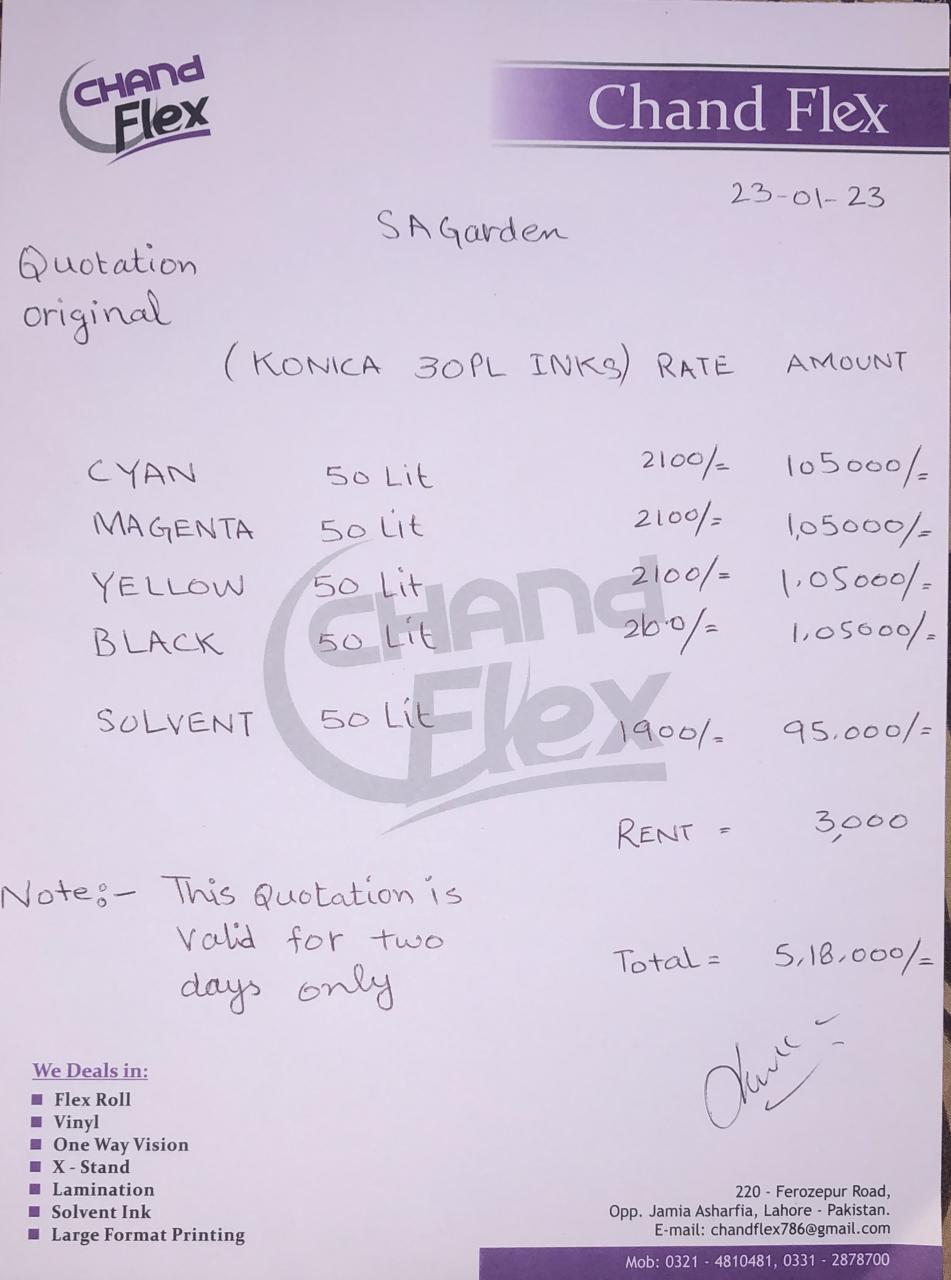 CHAND
Flex
Chand Flex
23-01-23
SAGarden
Quotation
original
(KONICA 30PL INKS) RATE AMOUNT
CYAN 50 Lit 2100/= 105000/=
MAGENTA 50 Lit 2100/= 1,05000/=
YELLOW 50 Lit 2100/= 1,05000/=
BLACK 50 Lit 1,05000/=
SOLVENT 50 Lit 1900/= 95,000/=
CHAND
Flex
RENT = 3,000
Note:- This Quotation is
valid for two
days only
Total = 5,18,000/=
We Deals in:
Flex Roll
Vinyl
One Way Vision
X - Stand
Lamination
Solvent Ink
Large Format Printing
220 - Ferozepur Road,
Opp. Jamia Asharfia, Lahore - Pakistan.
E-mail: chandflex786@gmail.com
Mob: 0321 - 4810481, 0331 - 2878700